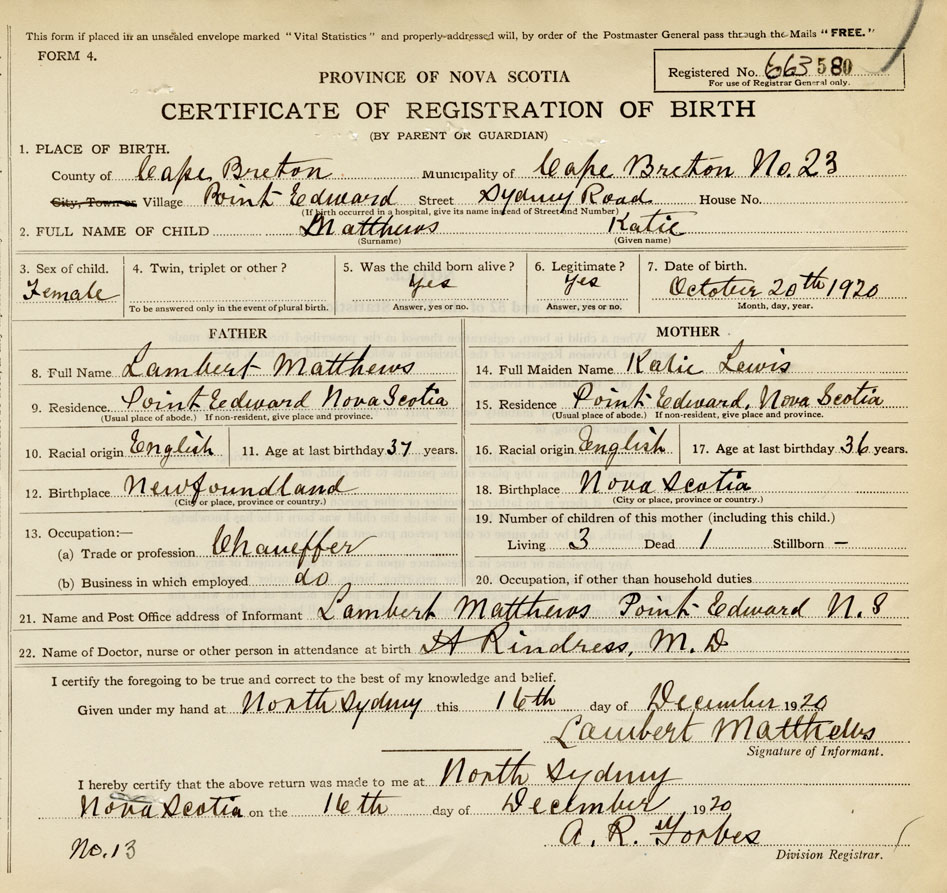 This form if placed in an unsealed envelope marked "Vital Statistics" and properly addressed will, by order of the Postmaster General pass through the Mails "FREE."
FORM 4.
Registered No. 663580
For use of Registrar General only.
PROVINCE OF NOVA SCOTIA
CERTIFICATE OF REGISTRATION OF BIRTH
(BY PARENT OR GUARDIAN)
1. PLACE OF BIRTH.
County of Cape Breton Municipality of Cape Breton No. 23
City, Town or Village Point Edward Street Sydney Road House No.
(If birth occurred in a hospital, give its name instead of Street and Number)
2. FULL NAME OF CHILD Matthews Katie
(Surname) (Given name)
3. Sex of child. 4. Twin, triplet or other? 5. Was the child born alive? 6. Legitimate? 7. Date of birth.
Female Yes Yes October 20th 1920
To be answered only in the event of plural birth. Answer, yes or no. Answer, yes or no. Month, day, year.
FATHER MOTHER
8. Full Name Lambert Matthews 14. Full Maiden Name Katie Lewis
9. Residence. Point Edward Nova Scotia 15. Residence Point Edward, Nova Scotia
(Usual place of abode.) If non-resident, give place and province. (Usual place of abode.) If non-resident, give place and province.
10. Racial origin English 11. Age at last birthday 37 years. 16. Racial origin English 17. Age at last birthday 36 years.
12. Birthplace Newfoundland 18. Birthplace Nova Scotia
(City or place, province or country.) (City or place, province or country.)
13. Occupation:— 19. Number of children of this mother (including this child.)
(a) Trade or profession Chaueffer Living 3 Dead 1 Stillborn —
(b) Business in which employed do 20. Occupation, if other than household duties
21. Name and Post Office address of Informant Lambert Matthews Point Edward N.S
22. Name of Doctor, nurse or other person in attendance at birth Rindress, M.D
I certify the foregoing to be true and correct to the best of my knowledge and belief.
Given under my hand at North Sydney this 16th day of December 1920
Lambert Matthews
Signature of Informant.
I hereby certify that the above return was made to me at North Sydney
Nova Scotia on the 16th day of December 1920
A. R. Forbes
No. 13
Division Registrar.